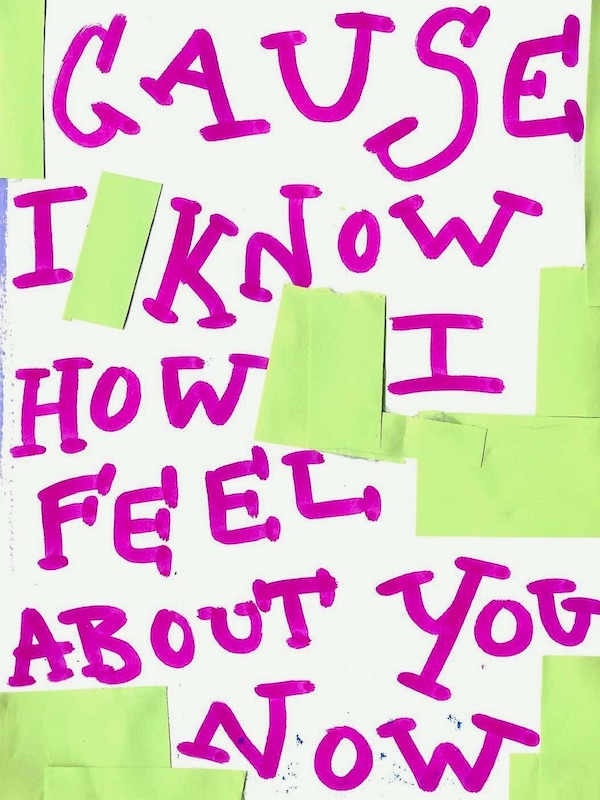 CAUSE
I KNOW
HOW I
FEEL
ABOUT YOU
NOW